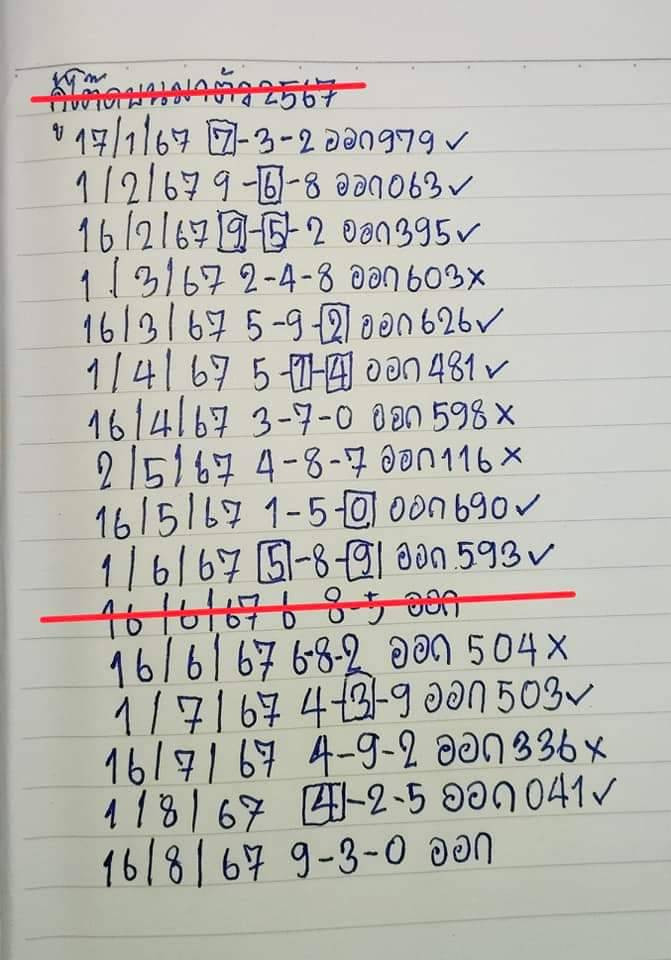 17/1/67 7-3-2 ออก979✓
1/2/67 9-6-8 ออก063✓
16/2/67 9-5-2 ออก395✓
1/3/67 2-4-8 ออก603×
16/3/67 5-9-2 ออก626✓
1/4/67 5-1-4 ออก481✓
16/4/67 3-7-0 ออก598×
2/5/67 4-8-7 ออก116×
16/5/67 1-5-0 ออก690✓
1/6/67 5-8-9 ออก593✓
16/6/67 6 8-5 ออก
16/6/67 6-8-2 ออก 504×
1/7/67 4-3-9 ออก503✓
16/7/67 4-9-2 ออก336×
1/8/67 4-2-5 ออก041✓
16/8/67 9-3-0 ออก